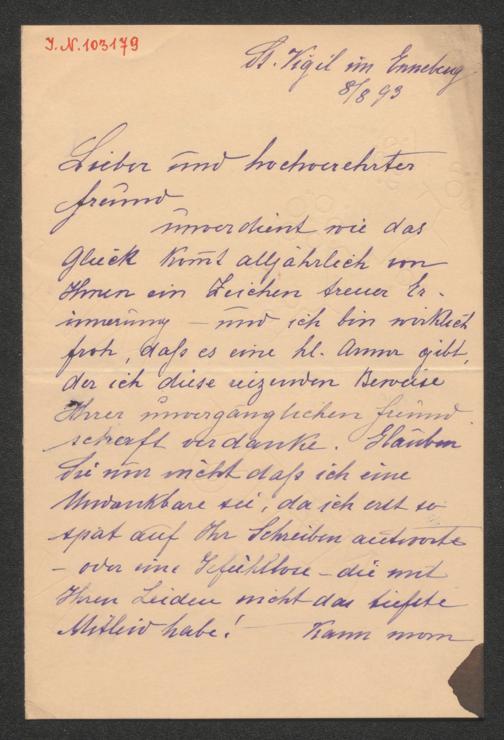 I.N. 103179
St. Vigil im Enneberg
8/8 93
Lieber und hochverehrter
Freund
unverdient wie das
Glück kom̅t alljährlich von
Ihnen ein Zeichen treuer Er-
innerung – und ich bin wirklich
froh, daß es eine hl. Anna gibt,
der ich diese reizenden Beweise
Ihrer unvergänglichen Freund
schaft verdanke. Glauben
Sie nur nicht daß ich eine
Undankbare sei, da ich erst so
spät auf Ihr Schreiben antworte
– oder eine Gefühllose – die mit
Ihren Leiden nicht das tiefste
Mitleid habe! Kann man